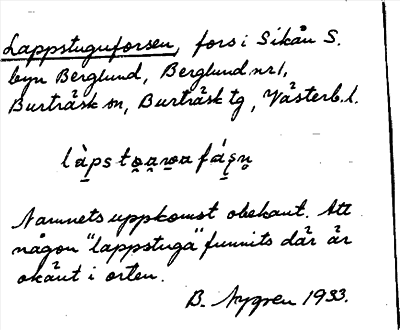 Lappstuguforsen, fors i Sikån S.
byn Berglund, Berglund nr 1,
Burträsk sn, Burträsk tg, Västerb. l.
Namnets uppkomst obekant. Att
någon "lappstuga" funnits där är
okänt i orten.
B. Nygren 1933.